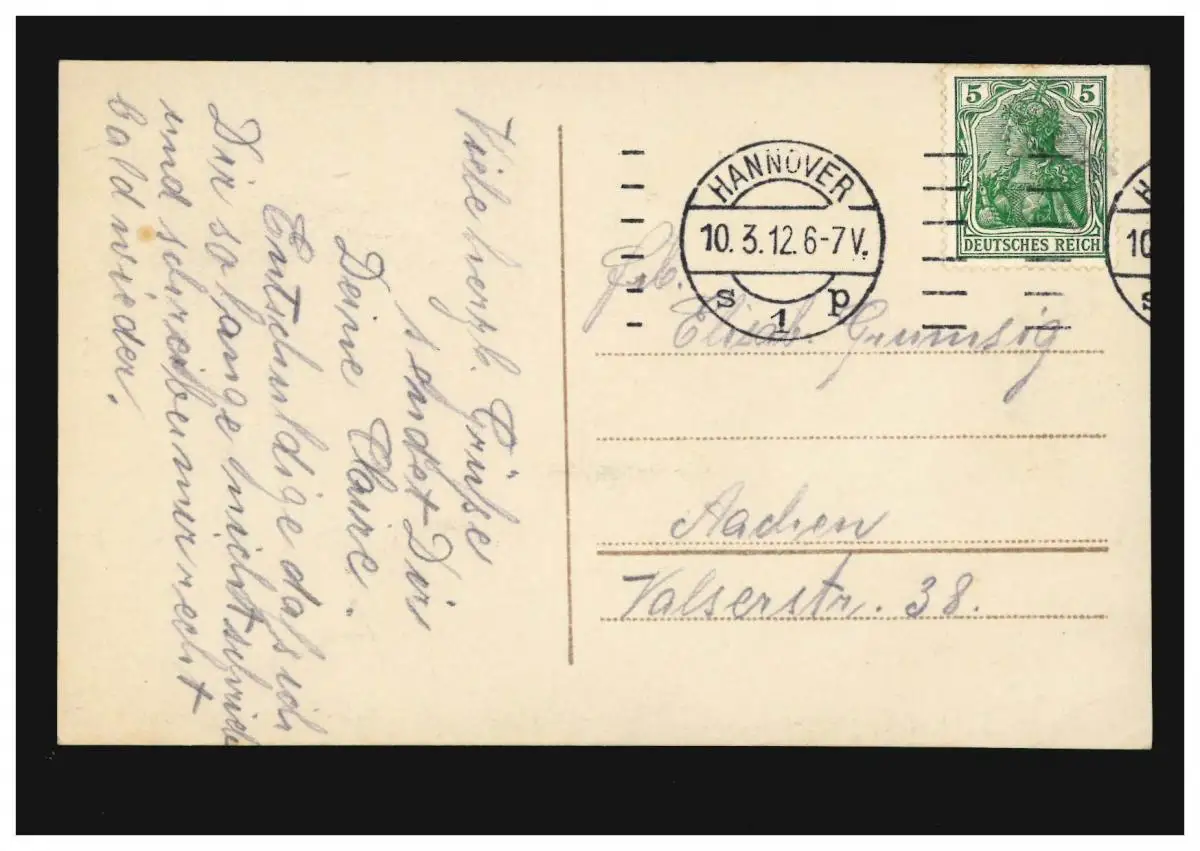 Viele herzl. Grüße
sendet Dir
Deine Claire.
Entschuldige daß ich
Dir so lange nicht schrieb
und schreibe nur recht
bald wieder.
5 5
DEUTSCHES REICH
HANNOVER
10. 3. 12. 6-7 V.
s 1 p
H
10
s
Frl.
Elisab.
Aachen
Valserstr. 38.